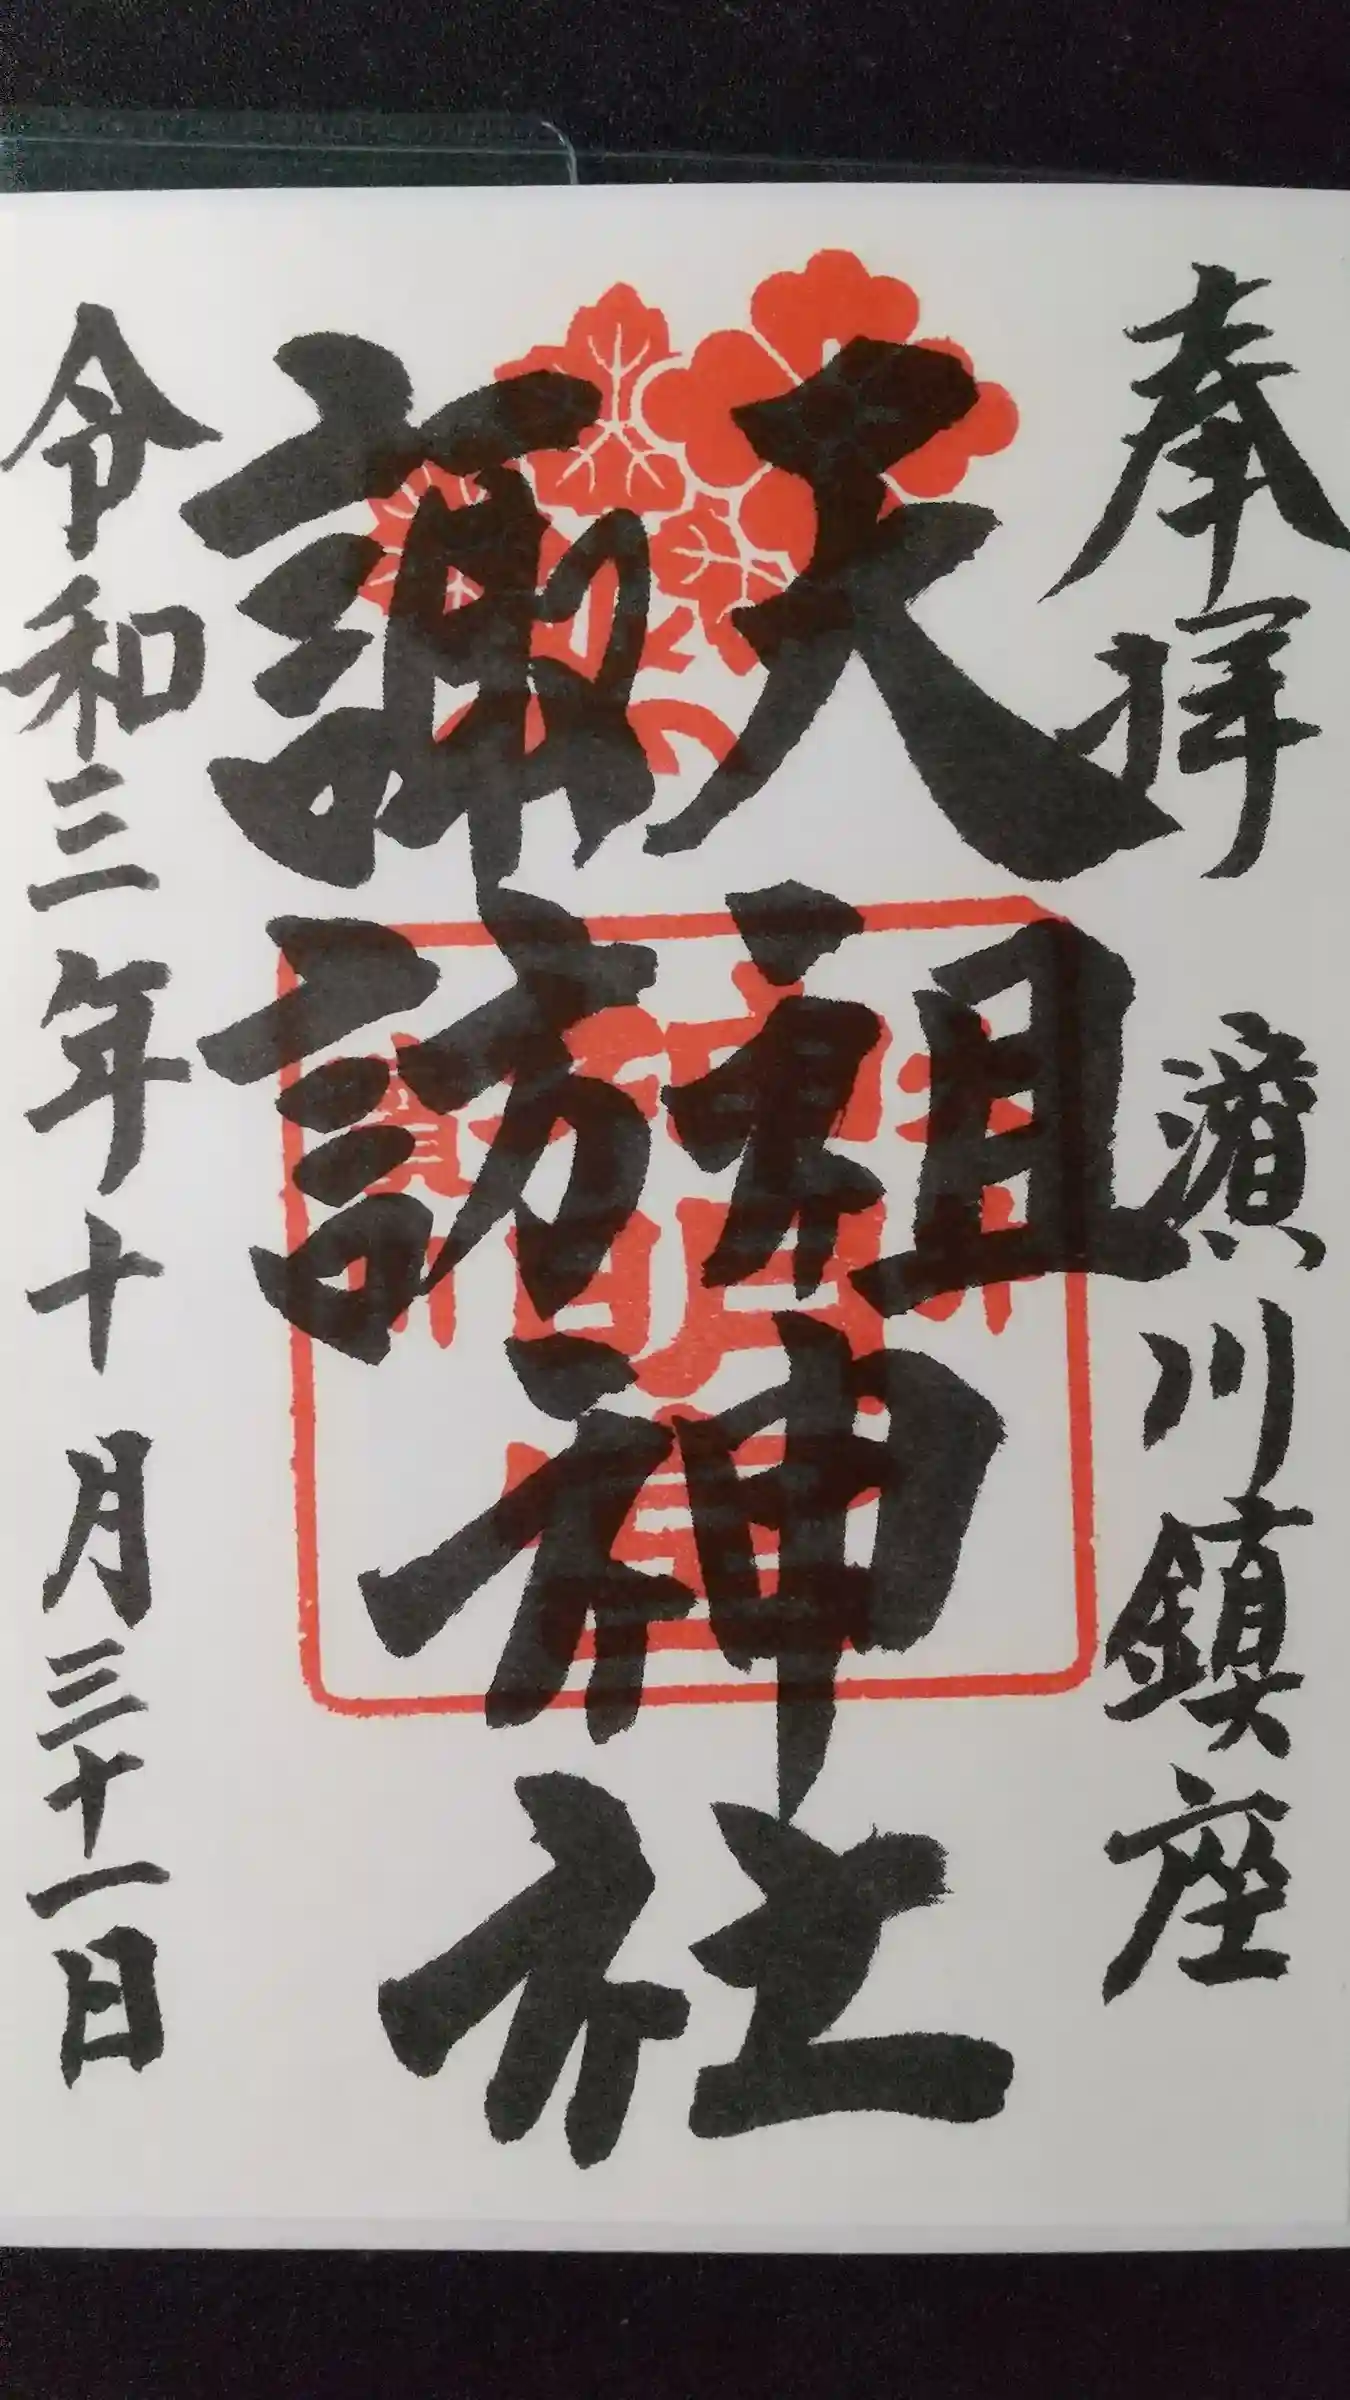 奉拝 濱川鎮座
天祖
諏訪
神社
令和三年十月三十一日